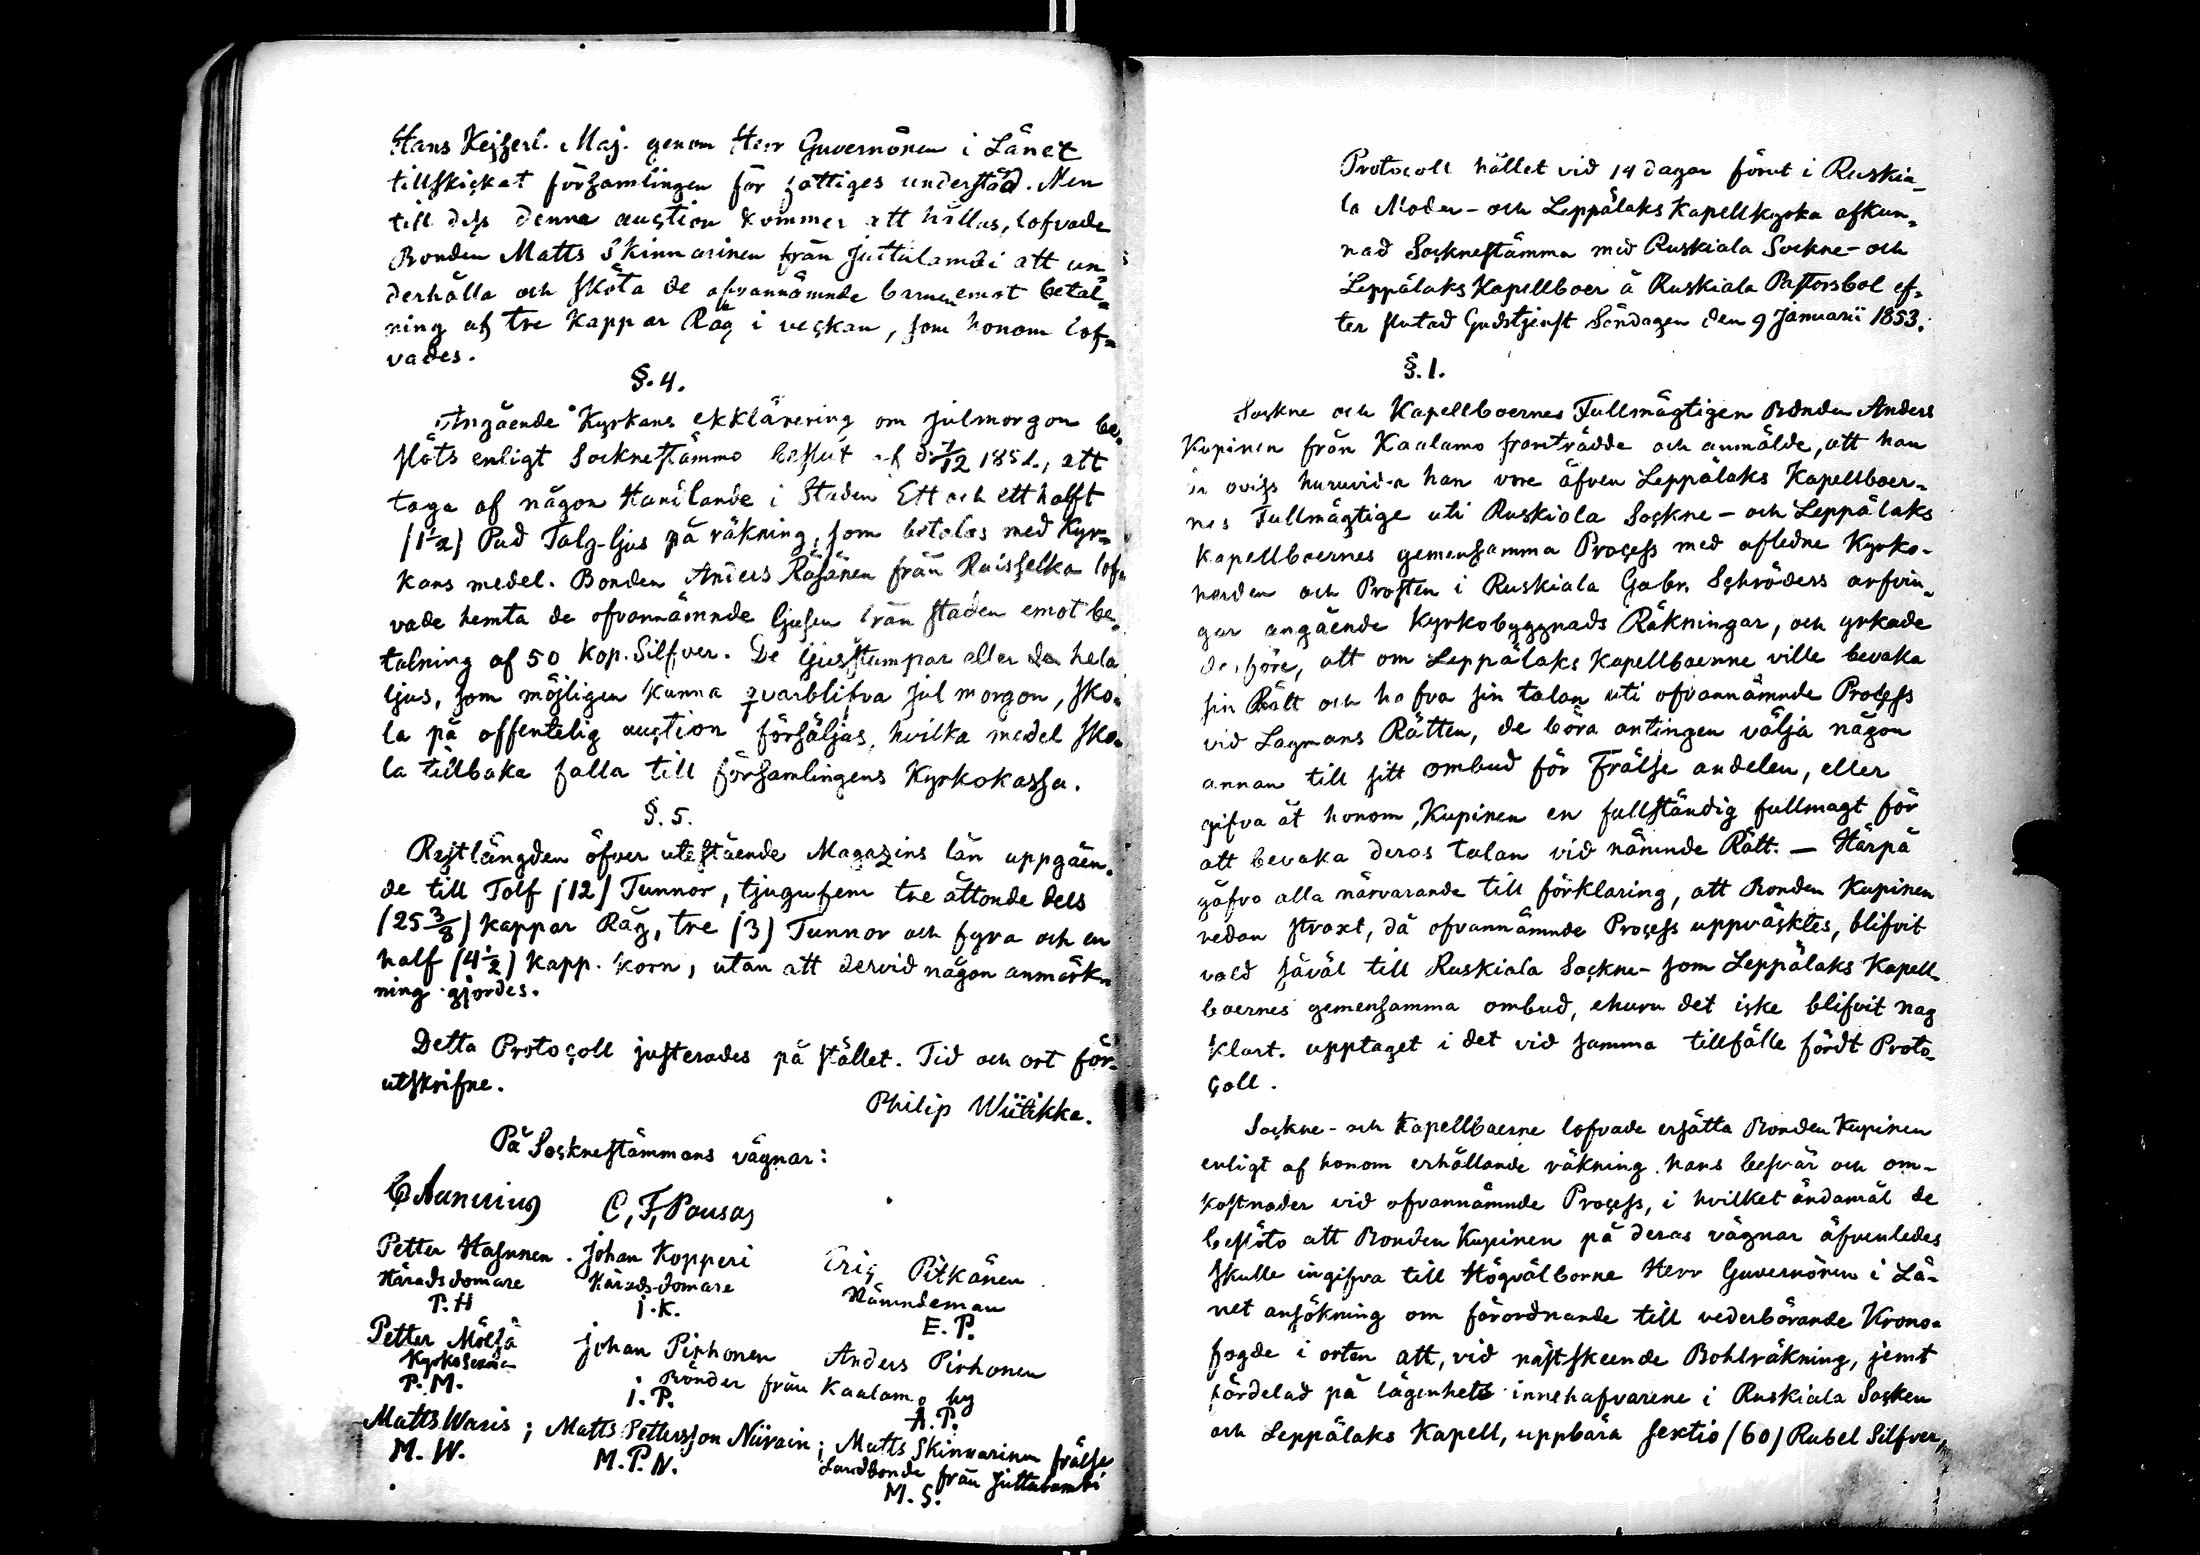 Hans Kejserl. Maj. genom Herr Guvernören i Länet
tillskickat församlingen för fattiges understöd. Men
till dess denna auction kommer att hållas, lofvade
Bonden Matts Skinnarinen från Juttulambi att un-
derhålla och sköta de ofvannämnde barnen emot betal-
ning af tre Kappar Råg i veckan, som honom lof-
vades.
§. 4.
Angående Kyrkans ekklärering om julmorgon be-
slöts enligt Sockenstämmo beslut af d. 7/12 1851, att
taga af någon Handlande i Staden Ett och ett halft
(1½) Pud Talg-ljus på räkning, som betalas med Kyr-
kans medel. Bonden Anders Räsänen från Ruisselka lof-
vade hemta de ofvannämnde ljusen från staden emot be-
talning af 50 Kop. Silfver. De ljusstumpar eller de hela
ljus, som möjligen kunna qvarblifva jul morgon, sko-
la på offentelig auction försäljas, hvilka medel sko-
la tillbaka falla till församlingens Kyrkokassa.
§. 5.
Restlängden öfver utestående Magazins lån uppgåen-
de till Tolf (12) Tunnor, tjugufem tre åttonde dels
(25 3/8) kappar Råg, tre (3) Tunnor och fyra och en
half (4½) Kapp. Korn, utan att dervid någon anmärk-
ning gjordes.
Detta Protocoll justerades på stället. Tid och ort för-
utskrifne.
Philip Wiitikka.
På Socknestämmans vägnar:
C. F. Pousar
Petter Hasunen. Johan Kopperi Eric Pitkänen
Häradsdomare Häradsdomare Nämndeman
P. H J. K. E. P.
Petter Mölsä Johan Pirhonen Anders Pirhonen
Kyrkosexm Bönder från Kaalamo by
P. M. J. P. A. P.
Matts Waris; Matts Pettersson Niirain; Matts Skinnarinen frälse
Landbonde från Juttulambi
M. W. M. P. N. M. S.
Protocoll hållet vid 14 dagar förut i Ruskia-
la Moder- och Leppälaks Kapellkyrka afkun-
nad Socknestämma med Ruskiala Sockne- och
Leppälaks Kapellboer å Ruskiala Pastorsbol ef-
ter slutad Gudstjenst Söndagen den 9 Januarii 1853.
§. 1.
Sockne och Kapellboernes Fullmägtigen Bonden Anders
Kupinen från Kaalamo framträdde och anmälde, att han
är oviss huruvida han vore äfven Leppälaks Kapellboer-
nes Fullmägtige uti Ruskiala Sockne- och Leppälaks
Kapellboernes gemensamma Process med aflidne Kyrko-
herden och Prosten i Ruskiala Gabr. Schröders arfvin-
gar angående Kyrkobyggnads Räkningar, och yrkade
derföre, att om Leppälaks Kapellboerne ville bevaka
sin Rätt och hafva sin talan uti ofvannämnde Process
vid Lagmans Rätten, de böra antingen välja någon
annan till sitt ombud för Frälse andelen, eller
gifva åt honom, Kupinen en fullständig fullmagt för
att bevaka deras talan vid nämnde Rätt. — Härpå
gåfvo alla närvarande till förklaring, att Bonden Kupinen
redan straxt, då ofvannämnde Process uppväcktes, blifvit
vald såväl till Ruskiala Sockne- som Leppälaks Kapell-
boernes gemensamma ombud, ehuru det icke blifvit nog
klart. upptaget i det vid samma tillfälle fördt Proto-
coll.
Sockne- och Kapellboerne lofvade ersätta Bonden Kupinen
enligt af honom erhållande räkning hans besvär och om-
kostnader vid ofvannämnde Process, i hvilket ändamål de
beslöto att Bonden Kupinen på deras vägnar äfvenledes
skulle ingifva till Högvälborne Herr Guvernören i Lä-
net ansökning om förordnande till vederbörande Krono-
fogde i orten att, vid nästskeende Bohlräkning, jemt
fördelad på lägenhets innehafvarene i Ruskiala Socken
och Leppälaks Kapell, uppbära sextio (60) Rubel Silfver,